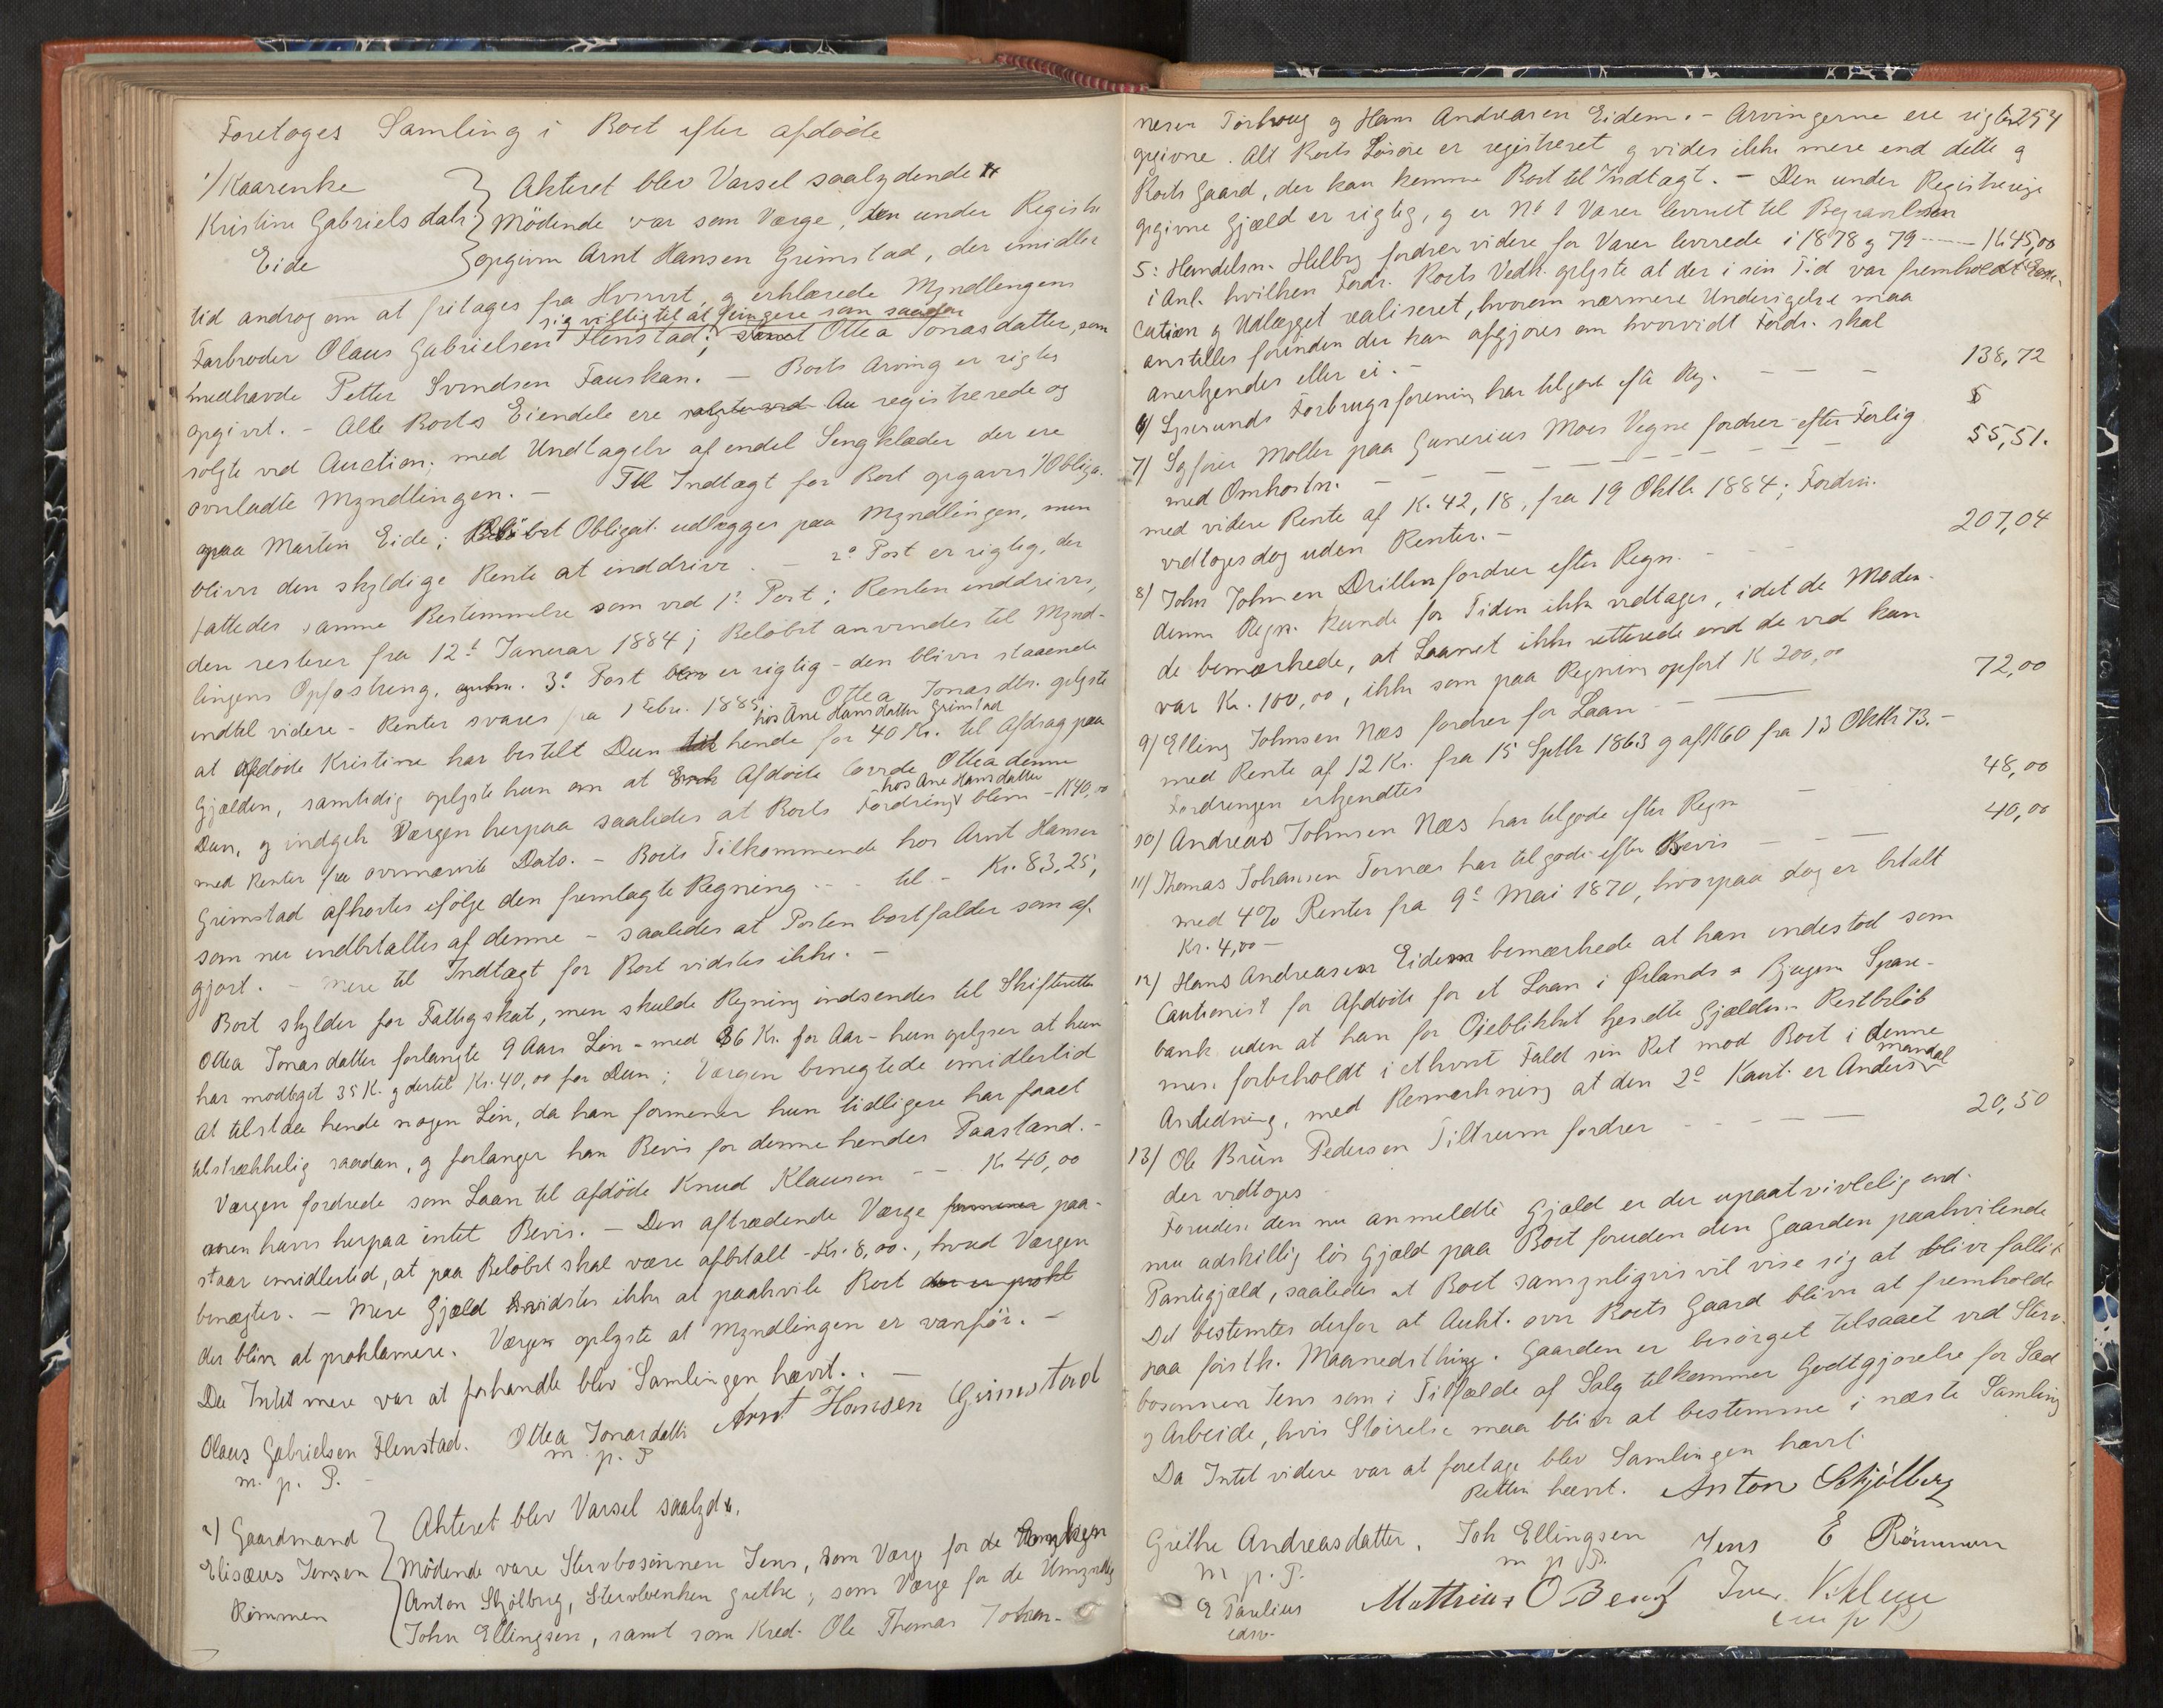 Foretoges Samling i Boet efter afdøde
1/ Kaarenke
Kristine Gabrielsdatr
Eide
Akteret blev Varsel saalydende
Mödende var som Værge, den under Registr
opgivne Arnt Hansen Grimstad, der imidler
tid androg om at fritages fra Hvervet, og erklærede Myndlengens
sig villig til at fungere som saadan
Farbroder Olaus Gabrielsen Flenstad; samt Ottea Jonasdatter, som
medhavde Petter Svendsen Fauskan. – Boets Arving er rigtig
opgivet. – Alle Boets Eiendele ere registrerede og
solgte ved Auction, med Undtagelse af endel Sengklæder der ere
overladte Myndlingen. – Til Indtægt for Boet opgaves 1/ Obliga.
paa Martin Eide; Obligat. udlægges paa Myndlingen, men
bliver den skyldige Rente at inddrive. – 2º Post er rigtig, der
fattedes samme Bestemmelse som ved 1º Post; Renten inddrives,
den resterer fra 12t Januar 1884; Beløbet anvendes til Mynd-
lingens Opfostring. 3º Post er rigtig – den bliver staaende
indtil videre – Renter svares fra 1 Febr. 1885. Ottea Jonasdtr. oplyste
hos Ane Hansdatter Grimstad
at Afdøde Kristine har bestilt Dun til hende for 40 Kr. til Afdrag paa
Gjælden, samtidig oplyste hun om at Afdøde lovede Ottea denne
hos Ane Hansdatter
Dun, og indgik Værgen herpaa saaledes at Boets Fordring bliver – K 40,00
med Renter fra overnævnte Dato. – Boets Tilkommende hos Arnt Hansen
Grimstad afkortes ifölge den fremlagte Regning – . til – Kr. 83,25,
som nu indbetaltes af denne – saaledes at Posten bortfalder som af-
gjort. – Mere til Indtægt for Boet vidstes ikke. –
Boet skylder for Fattigskat, men skulde Regning indsendes til Skifteretten
Ottea Jonasdatter forlangte 9 Aars Løn – med 36 Kr. for Aar – hun oplyser at hun
har modtaget 35 K. og dertil Kr. 40,00 for Dun; Værgen benegtede imidlertid
at tilstaa hende nogen Lön, da han formener hun tidligere har faaet
tilstrækkelig saadan, og forlanger han Bevis for denne hendes Paastand. –
Værgen fordrede som Laan til afdöde Knud Klausen – – K 40,00
men haves herpaa intet Bevis. – Den aftrædende Værge formener paa-
staar imidlertid, at paa Beløbet skal være afbetalt – Kr. 8,00., hvad Værgen
benægter. – Mere Gjæld vidstes ikke at paahvile Boet
der bliver at proklamere. Værgen oplyste at Myndlingen er vanför. –
Da Intet mere var at forhandle blev Samlingen hævet. . –
Olaus Gabrielsen Flenstad. Ottea Jonasdatte Arnt Hansen Grimstad
m. p. P. m. p. P
2/ Gaardmand
Elisæus Jensen
Römmen
Akteret blev Varsel saalyd.
Mödende vare Stervbosönnen Jens, som Værge for de
Anton Skjölberg, Stervboenken Grethe; som Værge for de Umyndig
John Ellingsen, samt som Kred. Ole Thomas Johan-
nesen Tørhoug og Hans Andreasen Eidem. – Arvingerne ere rigtig 254
opgivne. Alt Boets Løsøre er registreret og vides ikke mere end dette og
Boets Gaard, der kan komme Boet til Indtægt. – Den under Registrering
opgivne Gjæld er rigtig, og er No 1 Varer leveret til Begravelsen
5: Handelsm. Helberg fordrer videre for Varer leverede i 1878 og 79 – K 45,00
i Anl. hvilken Fordr. Boets Vedk. oplyste at der i sin Tid var fremholdt Exe-
cution og Udlægget realiseret, hvorom nærmere Undersøgelse maa
anstilles forinden der kan afgjøres om hvorvidt Fordr. skal
anerkjendes eller ei. –
6/ Lysøsunds Forbrugsforening har tilgode efter Reg. – – – 138,72
7/ Sagfører Møller paa Gunerius Moes Vegne fordrer efter Forlig
med Omkostn. – – – – – – 55,51.
med videre Rente af K. 42,18, fra 19 Oktbr 1884; Fordrin.
vedtoges dog uden Renter. –
8/ John Johnsen Drillen fordrer efter Regn. – – – 207,04
denne Regn. kunde for Tiden ikke vedtages, idet de Møden-
de bemærkede, at Laanet ikke rettere end de ved kun
var Kr. 100,00, ikke som paa Regning opført K 200,00
9/ Elling Johnsen Næs fordrer for Laan – – 72,00
med Rente af 12 Kr. fra 15 Septbr 1863 og af K 60 fra 13 Oktbr 73. –
Fordringen erkjendtes
10/ Andreas Johnsen Næs har tilgode efter Regn – 48,00
11/ Thomas Johansen Tornæs har tilgode efter Bevis – – 40,00
med 4% Renter fra 9d Mai 1870, hvorpaa dog er betalt
Kr. 4,00 –
12/ Hans Andreasen Eidem bemærkede at han indestod som
Cautionist for Afdøde for et Laan i Ørlands & Bjugen Spare-
bank uden at han for Øieblikket kjendte Gjældens Restbeløb
men forbeholdt i ethvert Fald sin Ret mod Boet i denne
Andledning, med Bemærkning at den 2º Kaut. er Anders
Mandal
13/ Ole Brün Pedersen Tiltrum fordrer – – – 20,50
der vedtoges
Foruden den nu anmeldte Gjæld er der upaatvivlelig end-
nu adskillig løs Gjæld paa Boet foruden den Gaarden paahvilende
Pantegjæld, saaledes at Boet sansynligvis vil vise sig at blive fallit
Det bestemtes derfor at Aukt. over Boets Gaard bliver at fremholde
paa førstk. Maanedsthing. Gaarden er besørget tilsaaet ved Sterv-
bosønnen Jens som i Tilfælde af Salg tilkommer Godtgjørelse for Sæd
og Arbeide, hvis Størrelse maa bliver at bestemme i næste Samling
Da Intet videre var at foretage blev Samlingen hævet
Retten hævet. Anton Schjölberg
Grethe Andreasdatter. Joh Ellingsen Jens E Römmen
m p. P. m p P.
E Paulius Matthias O Berg